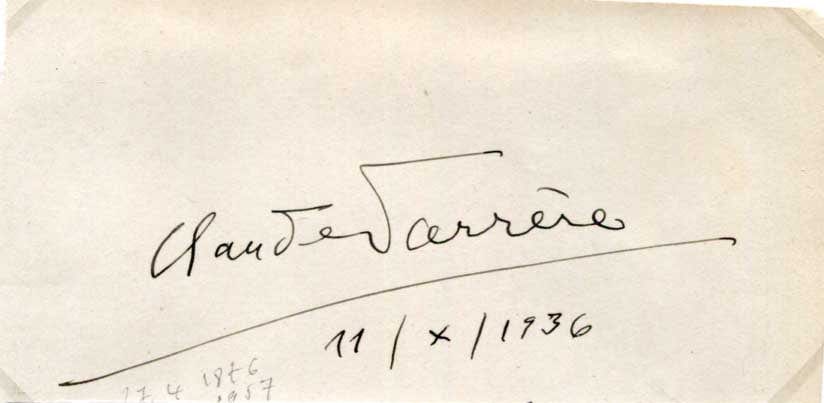 Claude Farrère
11 / X / 1936
27.4 1876
1957